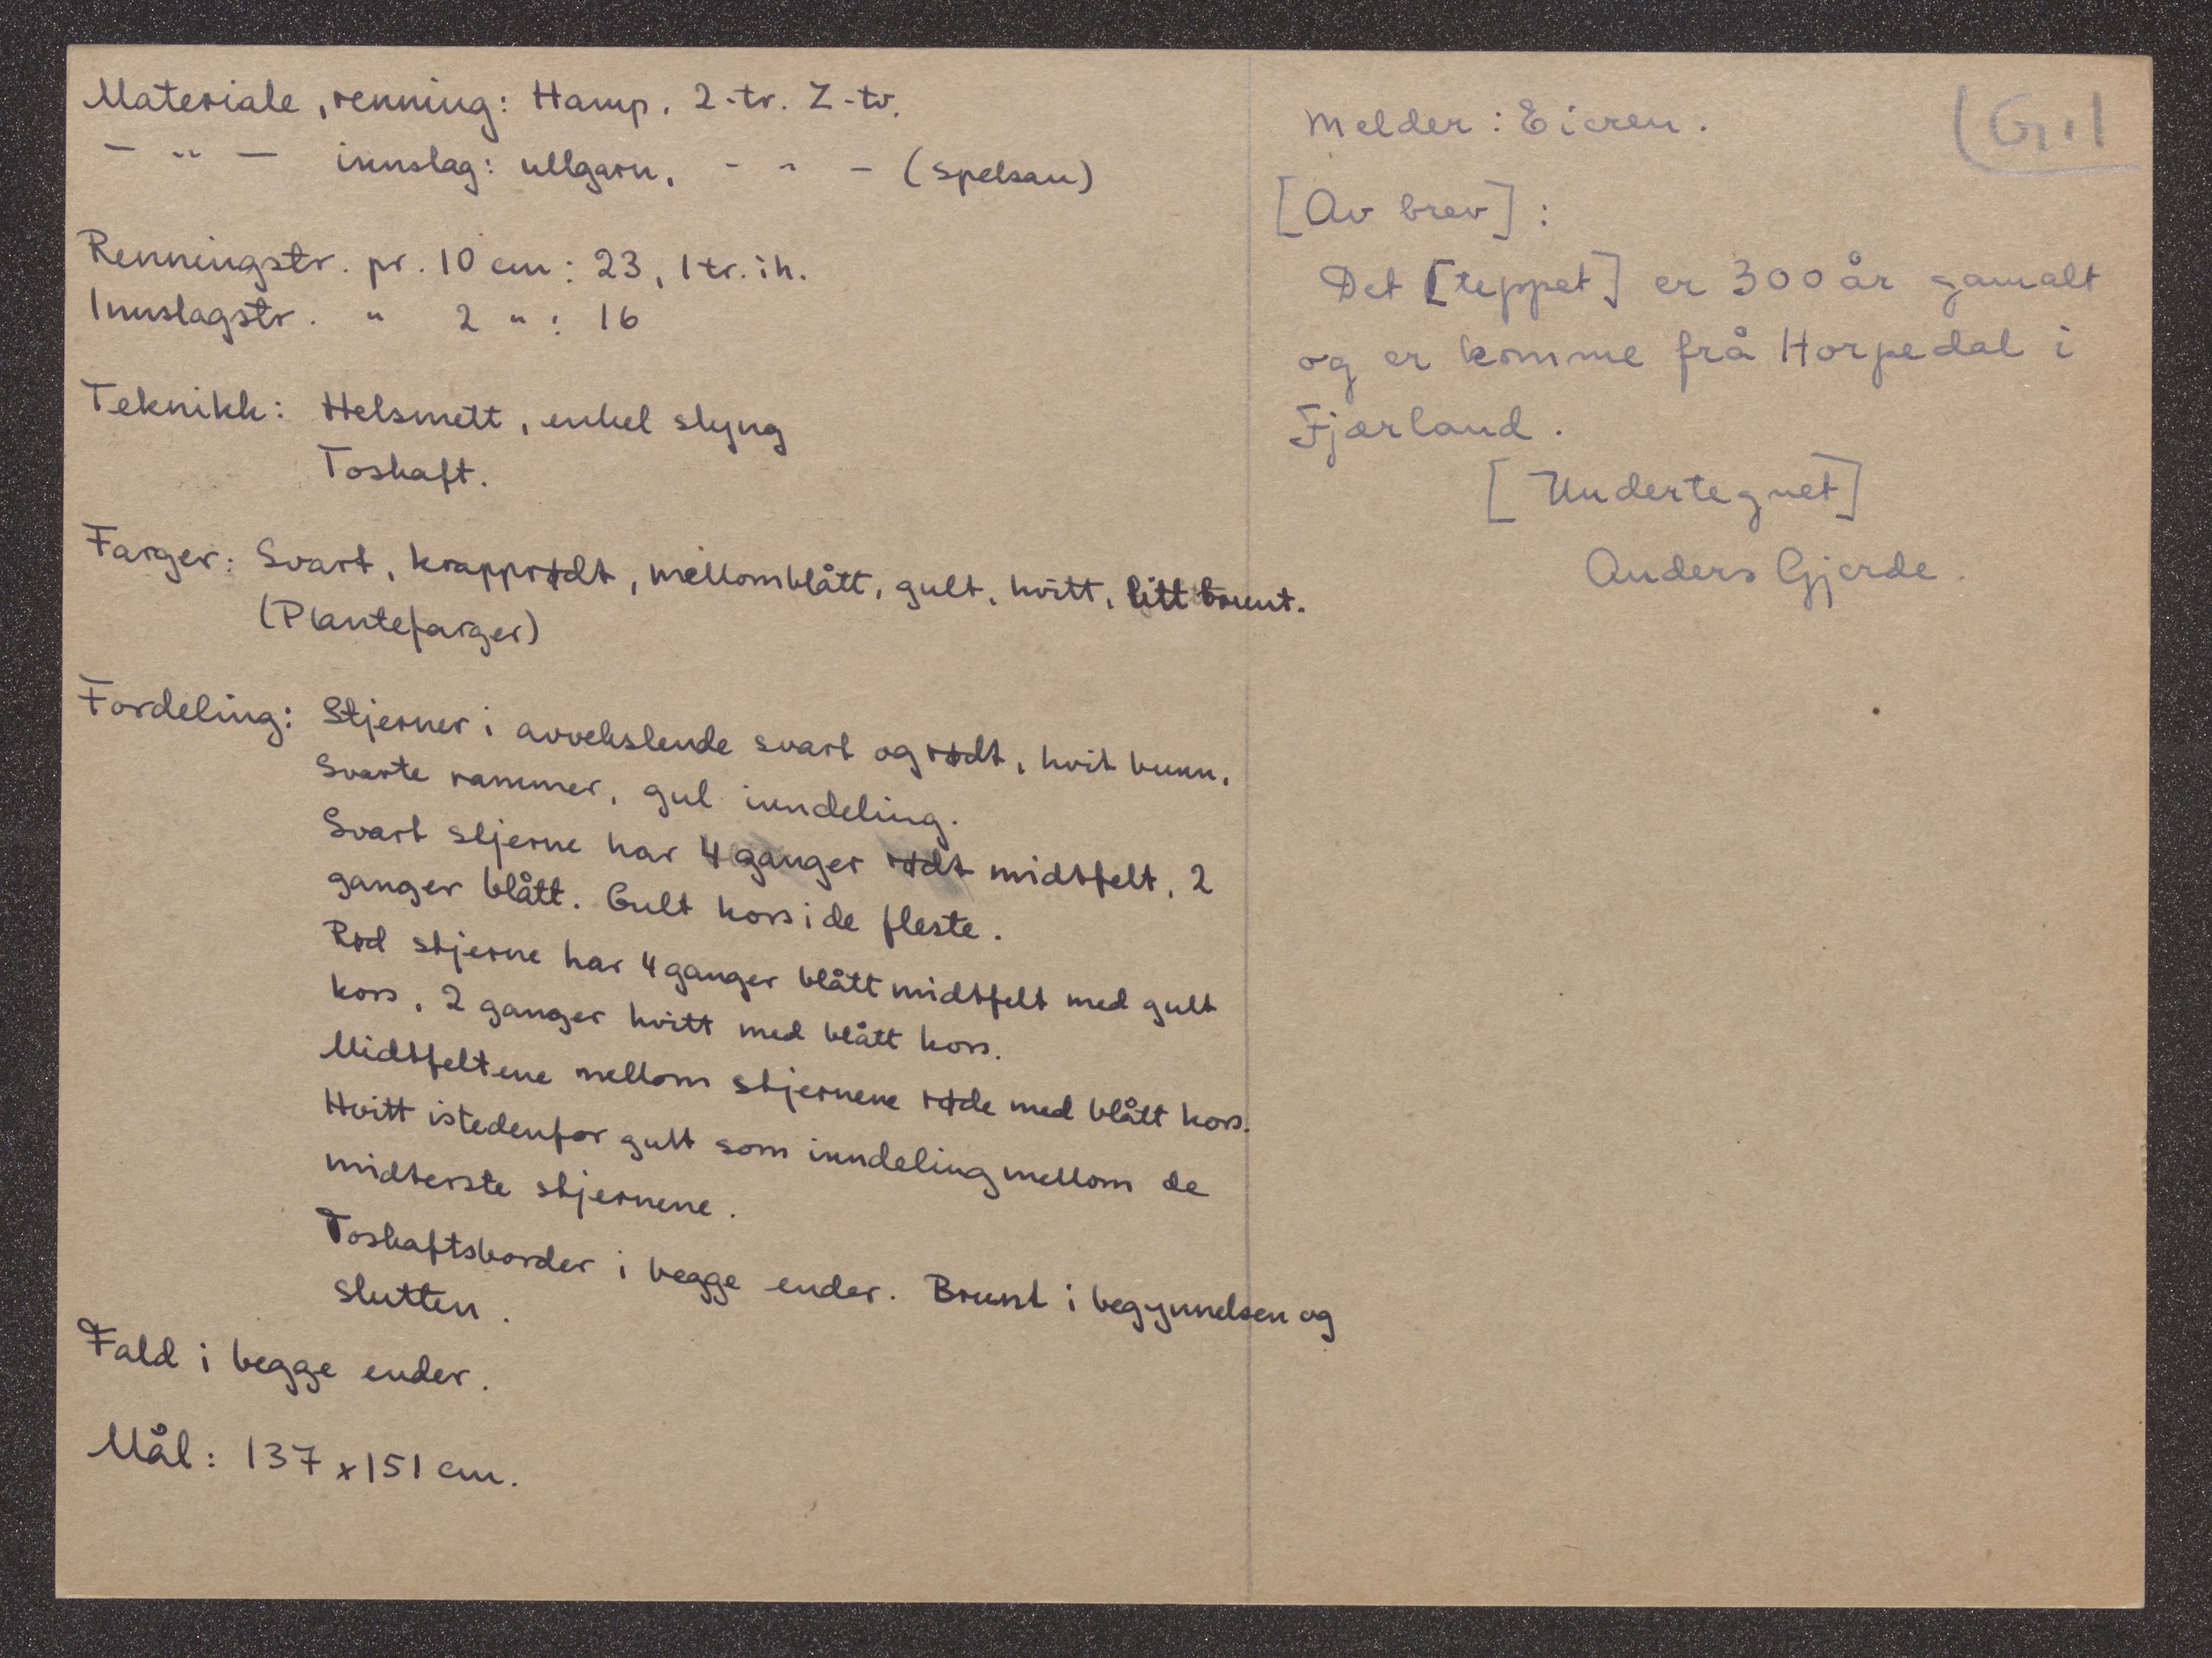 Materiale, renning: Hamp. 2-tr. Z-tv.
— " — innslag: ullgarn, - " - (spelsau)
Renningstr. pr. 10 cm: 23, 1 tr. i h.
Innslagstr. " 2 " : 16
Teknikk: Helsmett, enkel slyng
Toskaft.
Farger: Svart, krapprødt, mellomblått, gult, hvitt, litt brunt.
(Plantefarger)
Fordeling: Stjerner i avvekslende svart og rødt, hvit bunn,
Svarte rammer, gul inndeling.
Svart stjerne har 4 ganger rødt midtfelt, 2
ganger blått. Gult kors i de fleste.
Rød stjerne har 4 ganger blått midtfelt med gult
kors, 2 ganger hvitt med blått kors.
Midtfeltene mellom stjernene røde med blått kors.
Hvitt istedenfor gult som inndeling mellom de
midterste stjernene.
Toskaftsborder i begge ender. Brunt i begynnelsen og
slutten.
Fald i begge ender.
Mål: 137 x 151 cm.
Melder: Eieren.
[Av brev]:
Det [teppet] er 300 år gamalt
og er komme frå Horpedal i
Fjærland.
[Undertegnet]
Anders Gjerde.